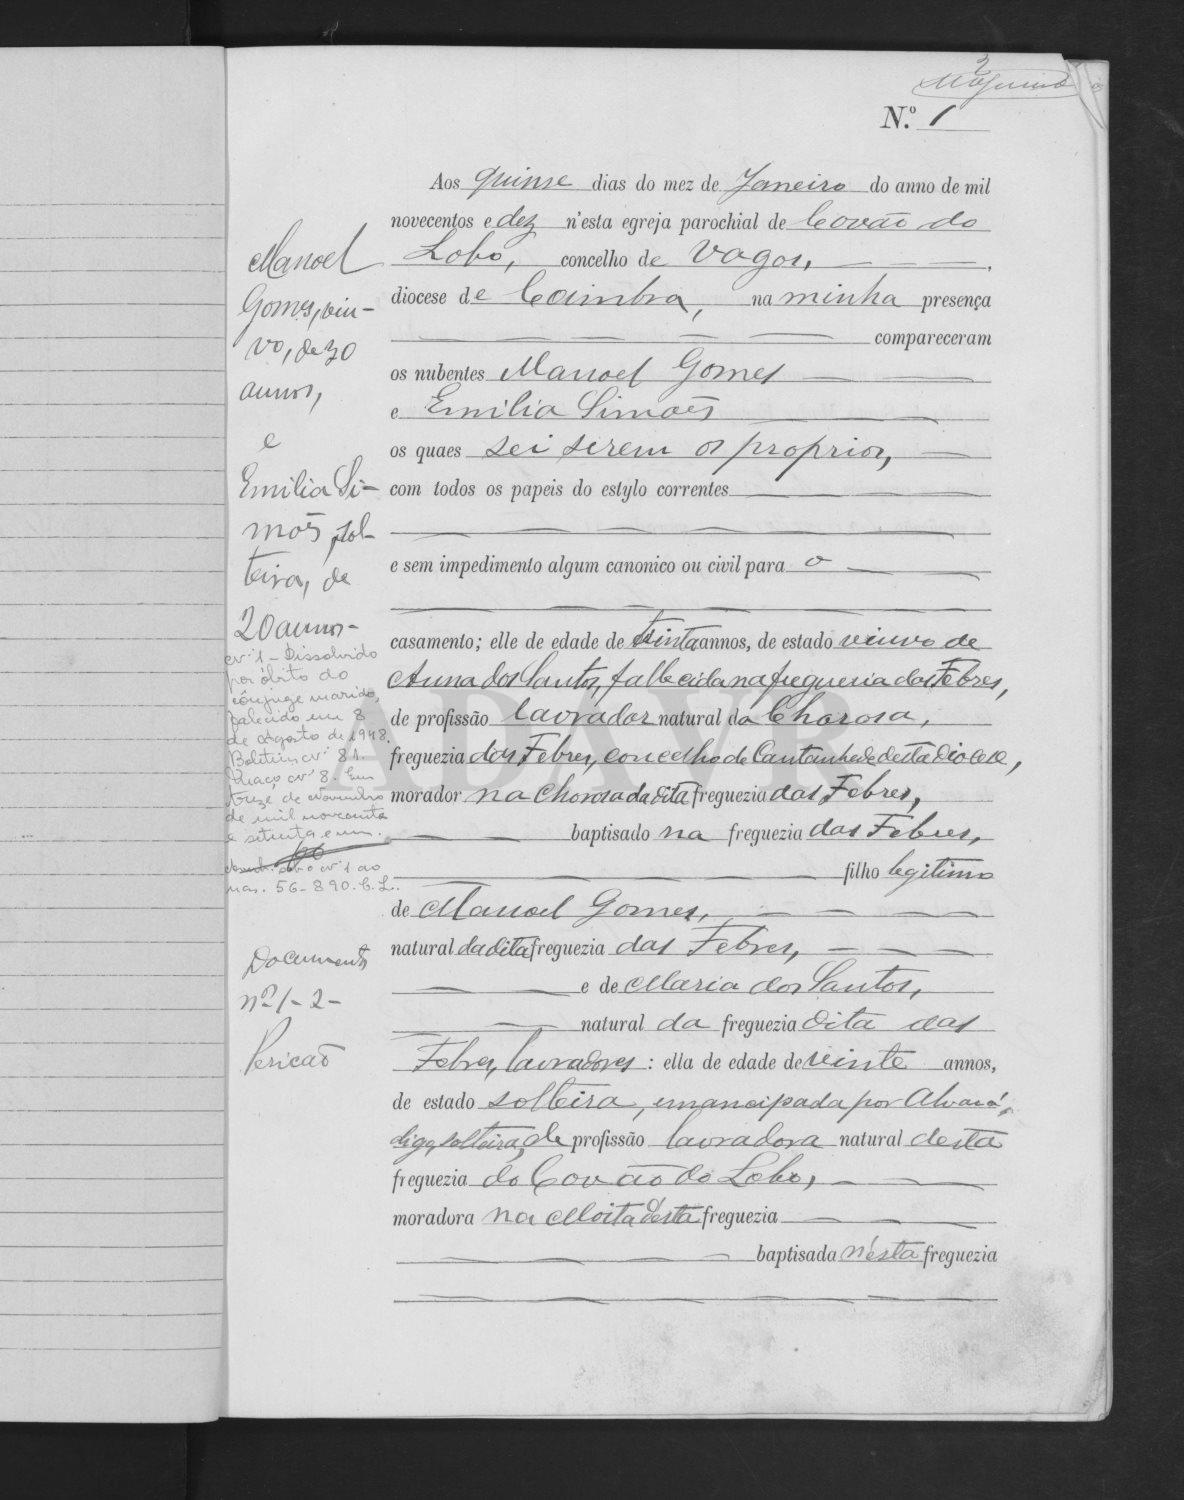 2
Nº 1
Aos quinse dias do mez de Janeiro do anno de mil
novecentos e dez n'esta egreja parochial de Covão do
Lobo, concelho de Vagos,
diocese de Coimbra, na minha presença
compareceram
os nubentes Manoel Gomes
e Emilia Simões
os quaes sei serem os proprios,
com todos os papeis do estylo correntes
e sem impedimento algum canonico ou civil para o
casamento; elle de edade de trinta annos, de estado viuvo de
Anna dos Santos, fallecida na freguesia das Febres,
de profissão lavrador natural da Chorosa,
freguezia das Febres, concelho de Cantanhede desta Diocese,
morador na Chorosa da dita freguezia das Febres,
baptisado na freguezia das Febres,
filho legitimo
de Manoel Gomes,
natural da dita freguezia das Febres,
e de Maria dos Santos,
natural da freguezia dita das
Febres, lavradores : ella de edade de veinte annos,
de estado solteira, emancipada por Alvará,
digo, solteira, de profissão lavradora natural desta
freguezia do Covão do Lobo,
moradora na Moita desta freguezia
baptisada n'esta freguezia
Manoel
Gomes, viu-
vo, de 30
annos,
e
Emilia Si-
mões, sol-
teira, de
20 annos-
nº 1 - Dissolvido
por óbito do
cônjuge marido,
falecido em 8
de Agosto de 1948.
Boletim nº 81.
Maço nº 8. Em
treze de
de mil novecentos
e setenta e um.
nº 1 ao
56-890. C. L.
Documentos
nº 1-2-
ADAVR